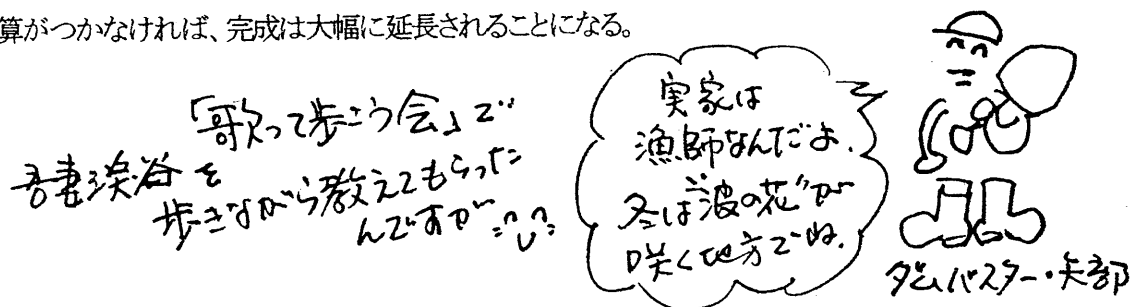 算がつかなければ、完成は大幅に延長されることになる。
「歌って歩こう会」で
吾妻渓谷を
歩きながら教えてもらった
んですが
実家は
漁師なんだよ.
冬は"波の花"が
咲く地方でね.
ダムバスター・矢部